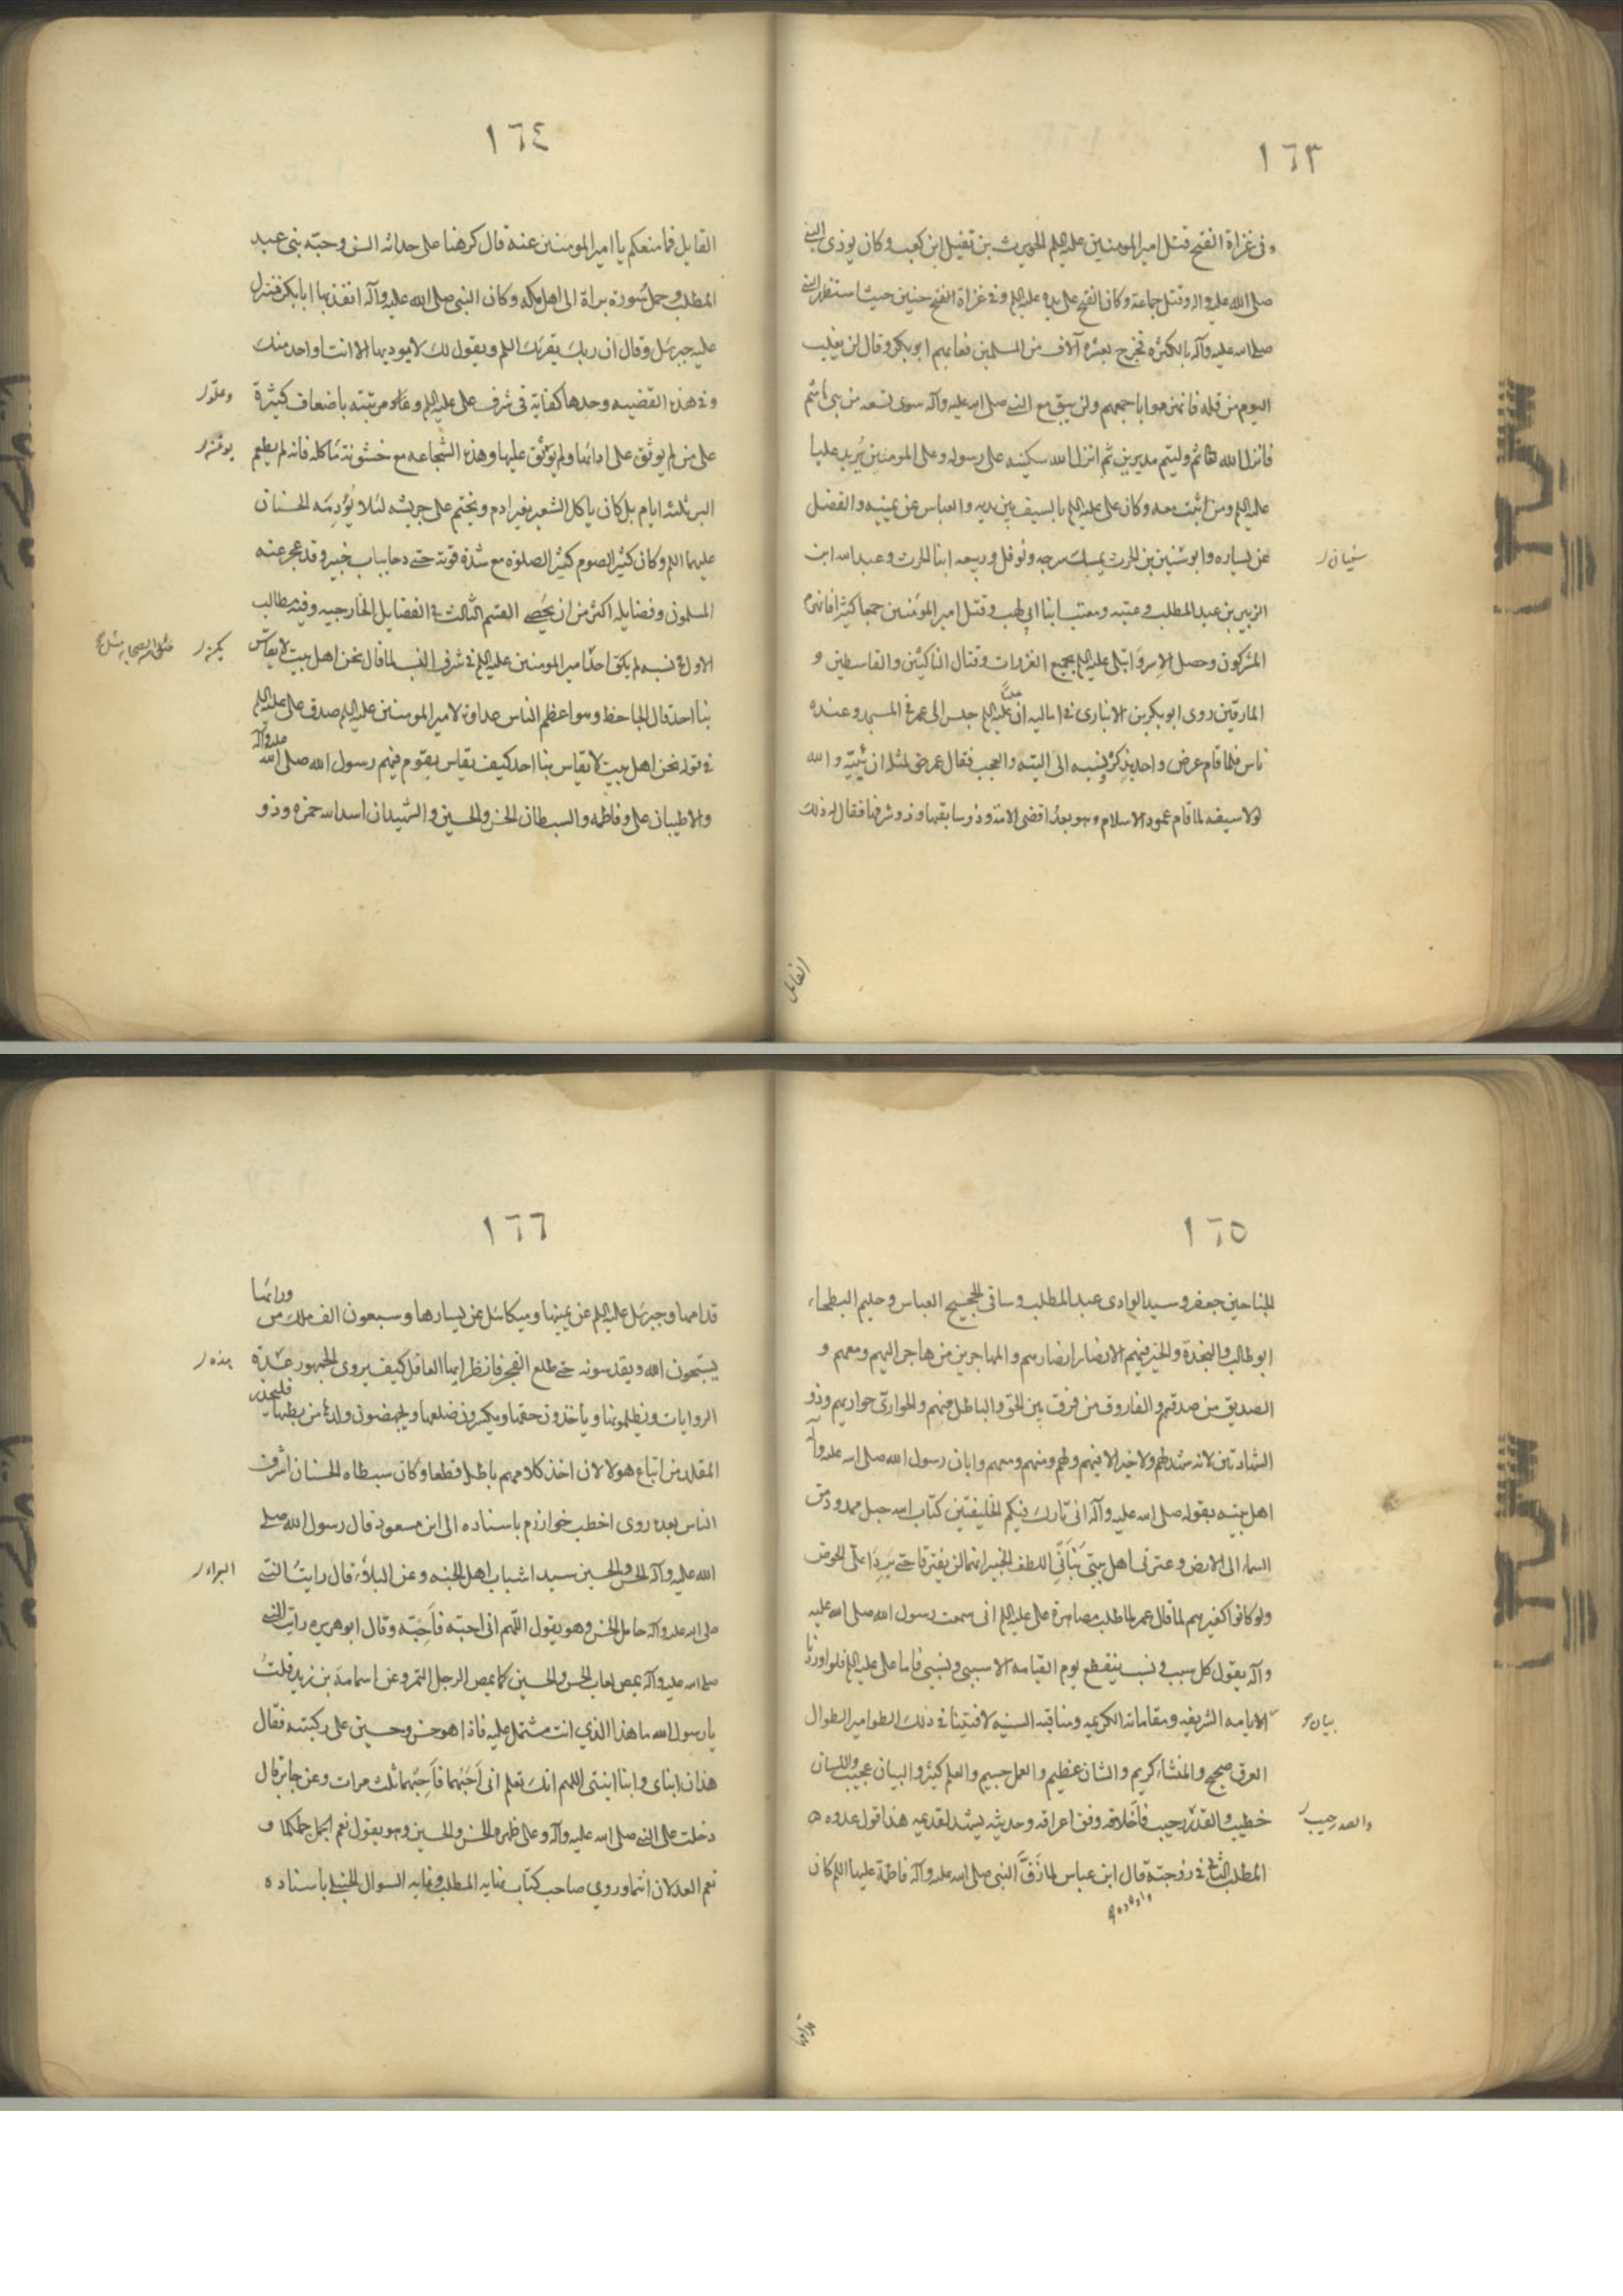 ١٦٣
وفى غزاة الفتح قتل امير المومنين عليه السلم الحويرث بن نقيل ابن كعب وكان يوذى النبى
صلى الله عليه واله وقتل جماعة وكان الفتح على يده عليه السلم وفى غزاة الفتح حنين حيث استظهر النبى
صلى الله عليه وآله بالكثره فخرج بعشره آلاف من المسلمين فعانهم ابو بكر وقال لن يغلب
اليوم من قله فانهزموا باجمعهم ولن يبق مع النبى صلى الله عليه وآله سوى تسعه من بنى هاشم
فانزل الله ثم وليتم مدبرين ثم انزل الله سكينه على رسوله وعلى المومنين يريد عليا
عليه السلم ومن اثبت معه وكان على عليه السلم بالسيف بين يديه والعباس عن يمينه والفضل
عن يساره وابو سفين بن الحرث يمسك سرجه ونوفل وربيعه ابنا الحرث وعبد الله ابن
سفيان
الزبير بن عبد المطلب وعتبه ومعتب ابنا ابى لهب وقتل امير المومنين جمعا كثيرا فانهزم
المشركون وحصل الاسر وابتلى عليه السلم بجميع الغزوات وقتال الناكثين والقاسطين و
المارقين روى ابو بكر بن الانبارى فى اماليه ان عليا عليه السلم جلس الى عمر فى المسجد وعنده
ناس فلما قام عرض واحد بذكره ونسبه الى التيه والعجب فقال عمر حق لمثله ان يتيه والله
لولا سيفه لما قام عمود الاسلام وهو بعد اقضى الامة وذو سابقتها وذو شرفها فقال له ذلك
القايل
١٦٤
القايل فما منعكم يا امير المومنين عنه قال كرهناه على حداثه السن وحبّه بنى عبد
المطلب وحمل سورة براة الى اهل مكه وكان النبى صلى الله عليه وآله انفذ بها ابا بكر فنزل
عليه جبرئل وقال ان ربك يقرئك السلم ويقول لك لا يوديها الا انت او احد منك
وفى هذه القضيه وحدها كفاية فى شرف على عليه السلم وعلو مرتبته باضعاف كثيرة
وعلو
على من لم يوثق على ادائها ولم يؤتمن عليها وهذه الشجاعه مع خشونة مأكله فانه لم يطعم
البر ثلثه ايام بل كان ياكل الشعير بغير ادم ويختم على جريشه لئلا يؤدمه الحسنان
عليهما السلم وكان كثير الصوم كثير الصلوة مع شدة قوته حتى دحا باب خيبر وقد عجز عنه
المسلمون وفضايله اكثر من ان يحصى القسم الثالث فى الفضايل الخارجيه وفيه مطالب
الاول فى نسبه لم يكن احد امير المومنين عليه السلم فى شرف النسب كما قال نحن اهل بيت لا يقاس
بنا احد قال الجاحظ وهو اعظم الناس عداوة لامير المومنين عليه السلم صدق على عليه السلم
فى قوله نحن اهل بيت لا يقاس بنا احد كيف يقاس بقوم فيهم رسول الله صلى الله عليه وآله
والاطيبان على وفاطمه والسبطان الحسن والحسين والشهيدان اسد الله حمزه وذو
١٦٥
الجناحين جعفر وسيد الوادى عبد المطلب وساقى الحجيج العباس وحليم البطحاء
ابو طالب والنجدة والخير فيهم الانصار انصارهم والمهاجرين من هاجر اليهم ومعهم و
الصديق من صدقهم والفاروق من فرق بين الحق والباطل فيهم والحوارى حواريهم وذو
الشهادتين لانه شهد لهم ولا خير الا فيهم ولهم ومنهم ومعهم وابان رسول الله صلى الله عليه وآله
اهل بيته بقوله صلى الله عليه وآله انى تارك فيكم الخليفتين كتاب الله حبل ممدود من
السماء الى الارض وعترتى اهل بيتى نبأنى اللطف الخبير انهما لن يفترقا حتى يردا على الحوض
ولو كانوا كغيرهم لما قال عمر لما طلب مصاهرة على عليه السلم انى سمعت رسول الله صلى الله عليه
وآله يقول كل سبب ونسب ينقطع يوم القيامه الا سببى ونسبى فاما على عليه السلم فلو اوردنا
لايامه الشريفه ومقاماته الكريمه ومناقبه السنيه لافنينا فى ذلك الطوامير الطوال
بيان
العرق صحيح والمنشاء كريم والشان عظيم والعمل جسيم والعلم كثير والبيان عجيب واللسان
خطيب والقدر رحيب فاخلاقه وفق اعراقه وحديثه يشهد لقديمه هذا قول عدوه
والصدر رحيب
المطلب الثانى فى زوجته قال ابن عباس لما زفّ النبى صلى الله عليه وآله فاطمة عليها السلم كان
واولاده
قدامها
١٦٦
قدامها وجبرئل عليه السلم عن يمينها وميكائل عن يسارها وسبعون الف ملك من ورائها
يسبحون الله ويقدسونه حتى طلع الفجر فانظر ايها العاقل كيف يروى الجمهور هذه
هذه
الروايات ويظلمونها وياخذون حقها ويكسرون ضلعها ويجهضون ولدها من بطنها فليحذر
المقلد من اتباع هولا لان اخذ كلامهم باطل قطعا وكان سبطاه الحسنان اشرف
الناس بعده روى اخطب خوارزم باسناده الى ابن مسعود قال رسول الله صلى
الله عليه وآله الحسن والحسين سيدا شباب اهل الجنه وعن البراء قال رايت النبى
البراء
صلى الله عليه وآله حامل الحسن وهو يقول اللهم انى احبه فاحبّه وقال ابو هريره رايت النبى
صلى الله عليه وآله يمص لعاب الحسن والحسين كما يمص الرجل التمر وعن اسامة بن زيد قلت
يا رسول الله ما هذا الذي انت مشتمل عليه فاذا هو حسن وحسين على ركبته فقال
هذان ابناى وابنا ابنتى اللهم انك تعلم انى احبهما فاحبهما ثلث مرات وعن جابر قال
دخلت على النبى صلى الله عليه وآله وعلى ظهره الحسن والحسين وهو يقول نعم الجمل جملكما و
نعم العدلان انتما وروي صاحب كتاب نهايه المطلب وغايه السوال الحنبلى باسناده